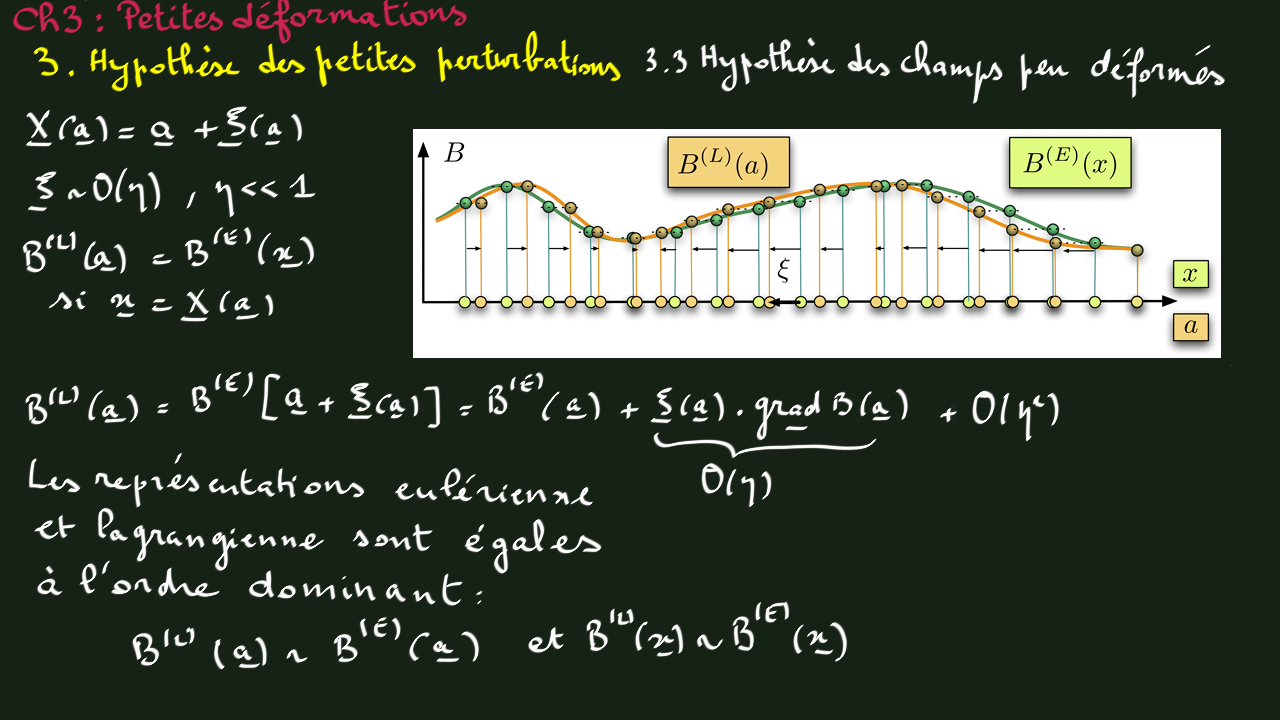 Ch3 : Petites déformations
3. Hypothèse des petites perturbations 3.3 Hypothèse des champs peu déformés
X(a) = a + ξ(a)
ξ ~ O(η) , η << 1
B^(L)(a) = B^(E)(x)
si x = X(a)
B
B^(L)(a)
B^(E)(x)
ξ
x
a
B^(L)(a) = B^(E)[a + ξ(a)] = B^(E)(a) + ξ(a) . grad B(a) + O(η²)
O(η)
Les représentations eulérienne
et lagrangienne sont égales
à l'ordre dominant :
B^(L)(a) ~ B^(E)(a) et B^(L)(x) ~ B^(E)(x)